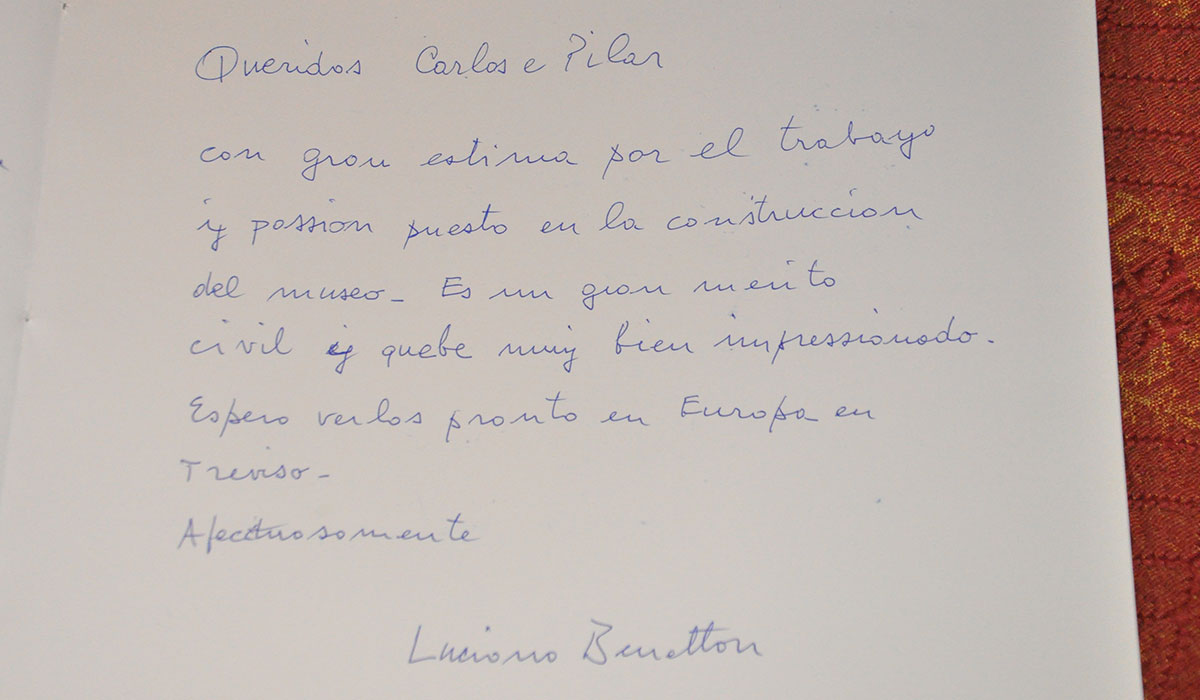 Queridos Carlos e Pilar
con gran estima por el trabayo
y passion puesto en la construccion
del museo_ Es un gran merito
civil y quebe muy bien impressionado.
Espero verlos pronto en Europa en
Treviso_
Afectuosamente
Luciano Benetton